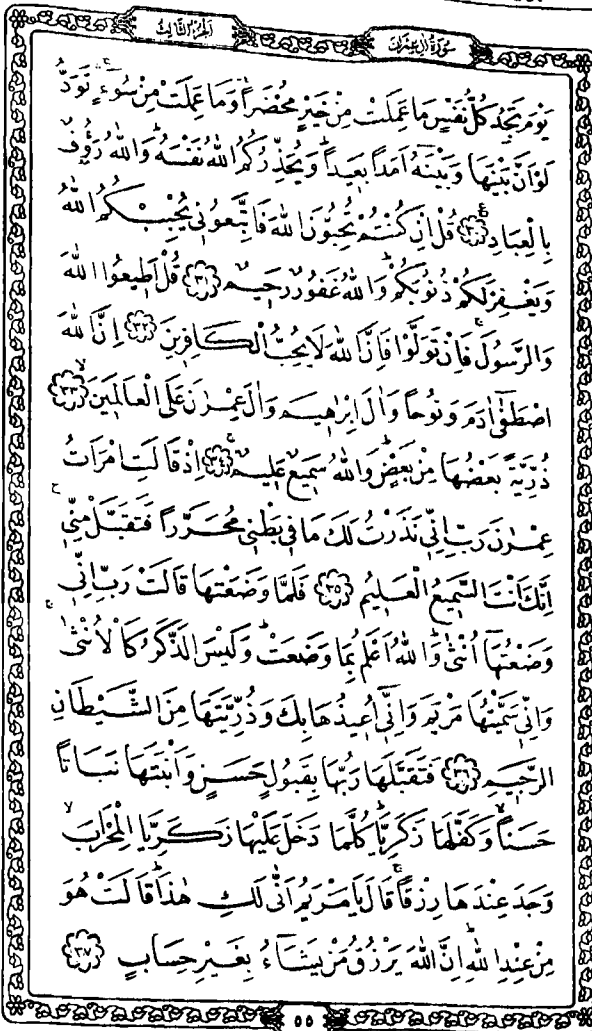 سورة آل عمران
الجزء الثالث
يَوْمَ تَجِدُ كُلُّ نَفْسٍ مَا عَمِلَتْ مِنْ خَيْرٍ مُحْضَرًا وَمَا عَمِلَتْ مِنْ سُوءٍ تَوَدُّ
لَوْ اَنَّ بَيْنَهَا وَبَيْنَهُ اَمَدًا بَعِيدًا وَيُحَذِّرُكُمُ اللهُ نَفْسَهُ وَاللهُ رَؤُفٌ
بِالْعِبَادِ ﴿٣٠﴾ قُلْ اِنْ كُنْتُمْ تُحِبُّونَ اللهَ فَاتَّبِعُونِي يُحْبِبْكُمُ اللهُ
وَيَغْفِرْ لَكُمْ ذُنُوبَكُمْ وَاللهُ غَفُورٌ رَحِيمٌ ﴿٣١﴾ قُلْ اَطِيعُوا اللهَ
وَالرَّسُولَ فَاِنْ تَوَلَّوْا فَاِنَّ اللهَ لَا يُحِبُّ الْكَافِرِينَ ﴿٣٢﴾ اِنَّ اللهَ
اصْطَفٰٓى اٰدَمَ وَنُوحًا وَاٰلَ اِبْرٰهِيمَ وَاٰلَ عِمْرٰنَ عَلَى الْعَالَمِينَ ﴿٣٣﴾
ذُرِّيَّةً بَعْضُهَا مِنْ بَعْضٍ وَاللهُ سَمِيعٌ عَلِيمٌ ﴿٣٤﴾ اِذْ قَالَتِ امْرَاَتُ
عِمْرٰنَ رَبِّ اِنِّي نَذَرْتُ لَكَ مَا فِي بَطْنِي مُحَرَّرًا فَتَقَبَّلْ مِنِّي
اِنَّكَ اَنْتَ السَّمِيعُ الْعَلِيمُ ﴿٣٥﴾ فَلَمَّا وَضَعَتْهَا قَالَتْ رَبِّ اِنِّي
وَضَعْتُهَآ اُنْثٰى وَاللهُ اَعْلَمُ بِمَا وَضَعَتْ وَلَيْسَ الذَّكَرُ كَالْاُنْثٰى
وَاِنِّي سَمَّيْتُهَا مَرْيَمَ وَاِنِّي اُعِيذُهَا بِكَ وَذُرِّيَّتَهَا مِنَ الشَّيْطَانِ
الرَّجِيمِ ﴿٣٦﴾ فَتَقَبَّلَهَا رَبُّهَا بِقَبُولٍ حَسَنٍ وَاَنْبَتَهَا نَبَاتًا
حَسَنًا وَكَفَّلَهَا زَكَرِيَّا كُلَّمَا دَخَلَ عَلَيْهَا زَكَرِيَّا الْمِحْرَابَ
وَجَدَ عِنْدَهَا رِزْقًا قَالَ يَا مَرْيَمُ اَنّٰى لَكِ هٰذَا قَالَتْ هُوَ
مِنْ عِنْدِ اللهِ اِنَّ اللهَ يَرْزُقُ مَنْ يَشَاءُ بِغَيْرِ حِسَابٍ ﴿٣٧﴾
٥٥